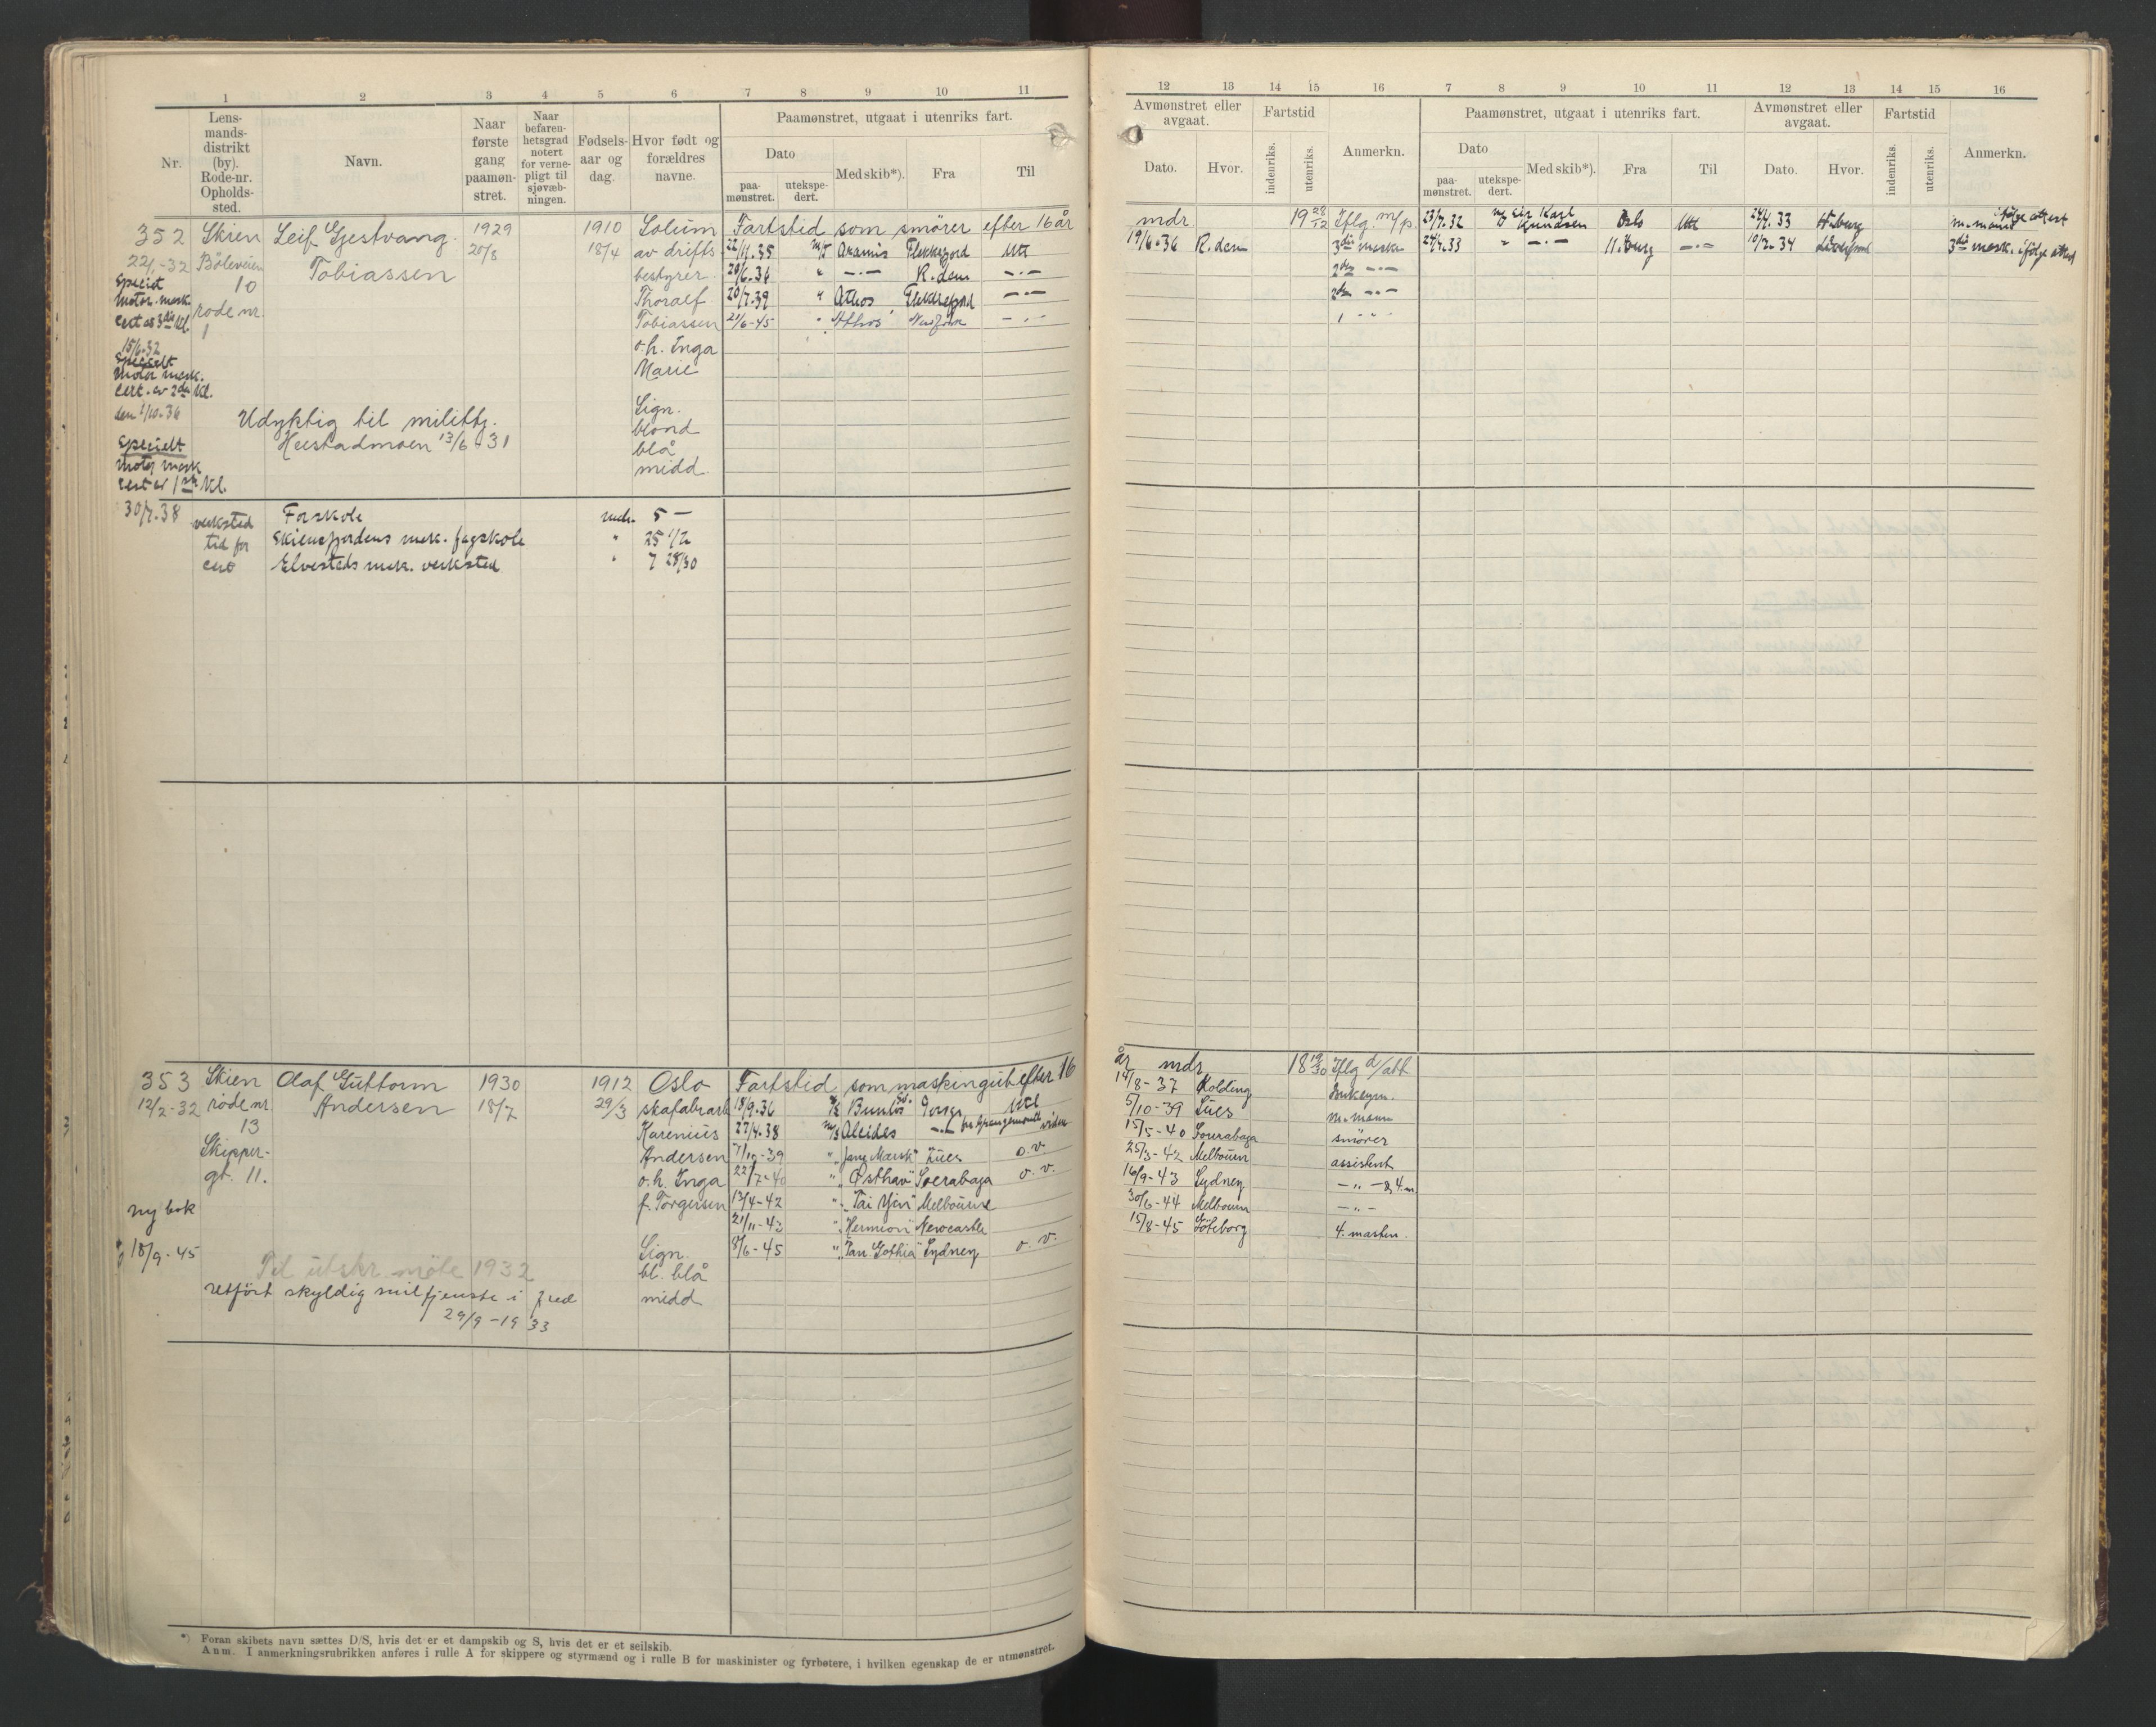 1 2 3 4 5 6 7 8 9 10 11
Nr.
Lens-
mands-
distrikt
(by).
Rode-nr.
Opholds-
sted.
Navn.
Naar
første
gang
paamøn-
stret.
Naar
befaren-
hetsgrad
notert
for verne-
pligt til
sjøvæb-
ningen.
Fødsels-
aar og
dag.
Hvor født og
forældres
navne.
Paamønstret, utgaat i utenriks fart.
Dato
paa-
mønstret.
utekspe-
dert.
Med skib*).
Fra
Til
352 Skien Leif Gjestvang 1929 1910 Solum Fartstid som smører efter 16 år
22/1-32 Bøleveien Tobiassen 20/8 18/4 av drifts 22/11.35 M/S Aramis Flekkefjord Utl
10 bestyrer 20/6.36 " —·— R.dam —·—
Motor. mask. rode nr. Thoralf 20/7.39 " Athos Flekkefjord —·—
cert av 3die kl. 1 Tobiassen 21/6-45 " Athos New York —·—
15/6.32 o.h. Inga
Specielt Marie
Motor mask.
cert. av 2den kl.
den 1/10.36 Lign.
Udyktig til milittj. blond
Heistadmoen 13/6-31 blå
Specielt midd.
Motor mask
cert av 1ste kl.
30/7.38 verksted Forskole mdr. 5 —
tid for Skiensfjordens mek. fagskole " 25 1/2
cert Elvesteds mek. verksted " 7 28/30
353 Skien Olaf Guttorm 1930 1912 Oslo Fartstid som maskingutt efter 16
12/2-32 rode nr. Andersen 18/7 29/3 skofabrarb 18/9.36 Utl
13 Karenius 27/4.38 M/S Alcides —·—
Skipper- Andersen 7/10-39 " "Jane Mærsk" Sues o.v.
gt. 11. o.h. Inga 22/7-40 " "Østhav" Soerabaga o.v.
f. Torgersen 13/4-42 " "Tai Yin" Melbourne
ny bok 21/11-43 " "Hermion" Newcastle
18/9-45 Lign. 8/6-45 " "Tan. Gothia" Sydney o.v.
Til utskr. møte 1932 bl. blå
retført skyldig miltjenste i fred midd
29/9-1933
*) Foran skibets navn sættes D/S, hvis det er et dampskib og S, hvis det er et seilskib.
Anm. I anmerkningsrubrikken anføres i rulle A for skippere og styrmænd og i rulle B for maskinister og fyrbøtere, i hvilken egenskap de er utmønstret.
12 13 14 15 16 7 8 9 10 11 12 13 14 15 16
Avmønstret eller
avgaat.
Dato. Hvor.
Fartstid
indenriks. utenriks.
Anmerkn.
Paamønstret, utgaat i utenriks fart.
Dato
paa-
mønstret.
utekspe-
dert.
Med skib*). Fra Til
Avmønstret eller
avgaat.
Dato. Hvor.
Fartstid
indenriks. utenriks.
Anmerkn.
mdr 19 28/12 Iflg. m/p. 23/7.32 Sir Karl Knudsen Oslo Utl 24/4.33 H.burg m.mand ifølge attest
19/6.36 R.dam 3die mask 24/4.33 " —·— H.burg —·— 10/2.34 3die mask. ifølge attest
2den —·—
2den —·—
1 " "
år mdr 18 19/30 Iflg d/att
14/8-37 Kolding Donkeym.
5/10-39 Sues m.mann
15/5-40 Soerabaga smører
25/3-42 Melbourn assistent
16/9-43 Sydney —"— & 4.m
30/6-44 Melbourn —"—
15/8-45 Göteborg 4. masten.